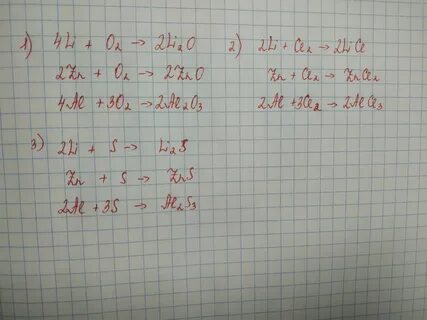 1) 4Li + O₂ → 2Li₂O
2Zn + O₂ → 2ZnO
4Al + 3O₂ → 2Al₂O₃
2) 2Li + Cl₂ → 2LiCl
Zn + Cl₂ → ZnCl₂
2Al + 3Cl₂ → 2AlCl₃
3) 2Li + S → Li₂S
Zn + S → ZnS
2Al + 3S → Al₂S₃